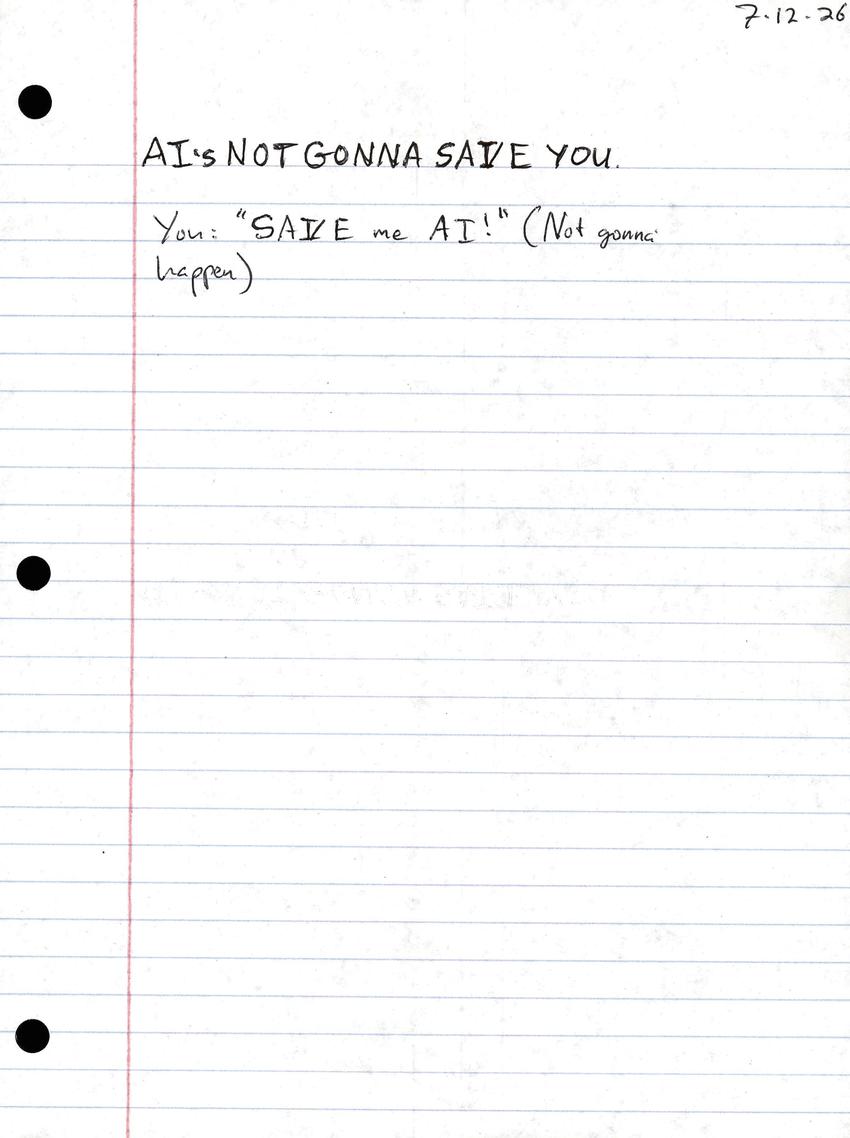 7.12.26
AI's NOT GONNA SAVE YOU.
You: "SAVE me AI!" (Not gonna
happen)